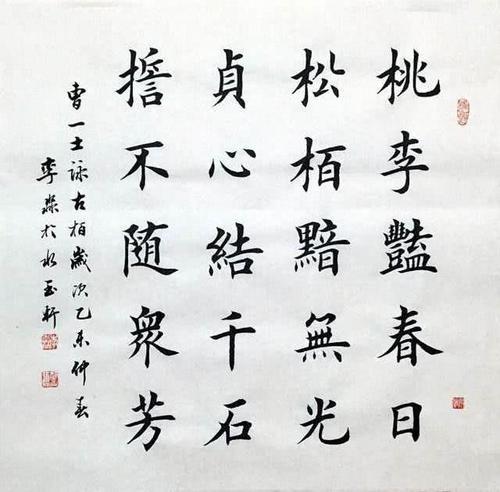 桃李豔春日
松栢黯無光
貞心結千石
擔不随眾芳
曹一士詠古栢歲次乙未仲春
李淼於水玉軒